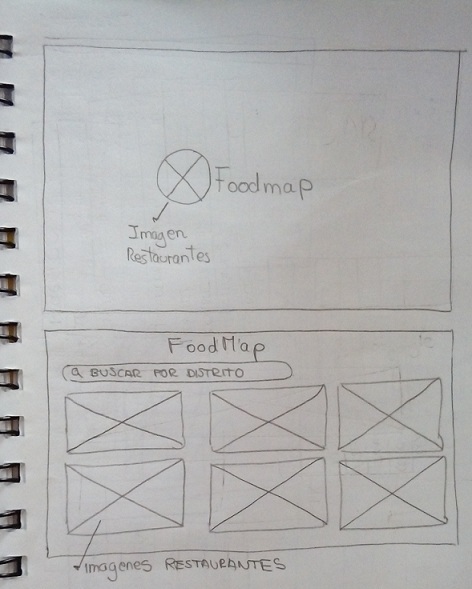 Foodmap
Imagen
Restaurantes
FoodMap
BUSCAR POR DISTRITO
Imagenes RESTAURANTES